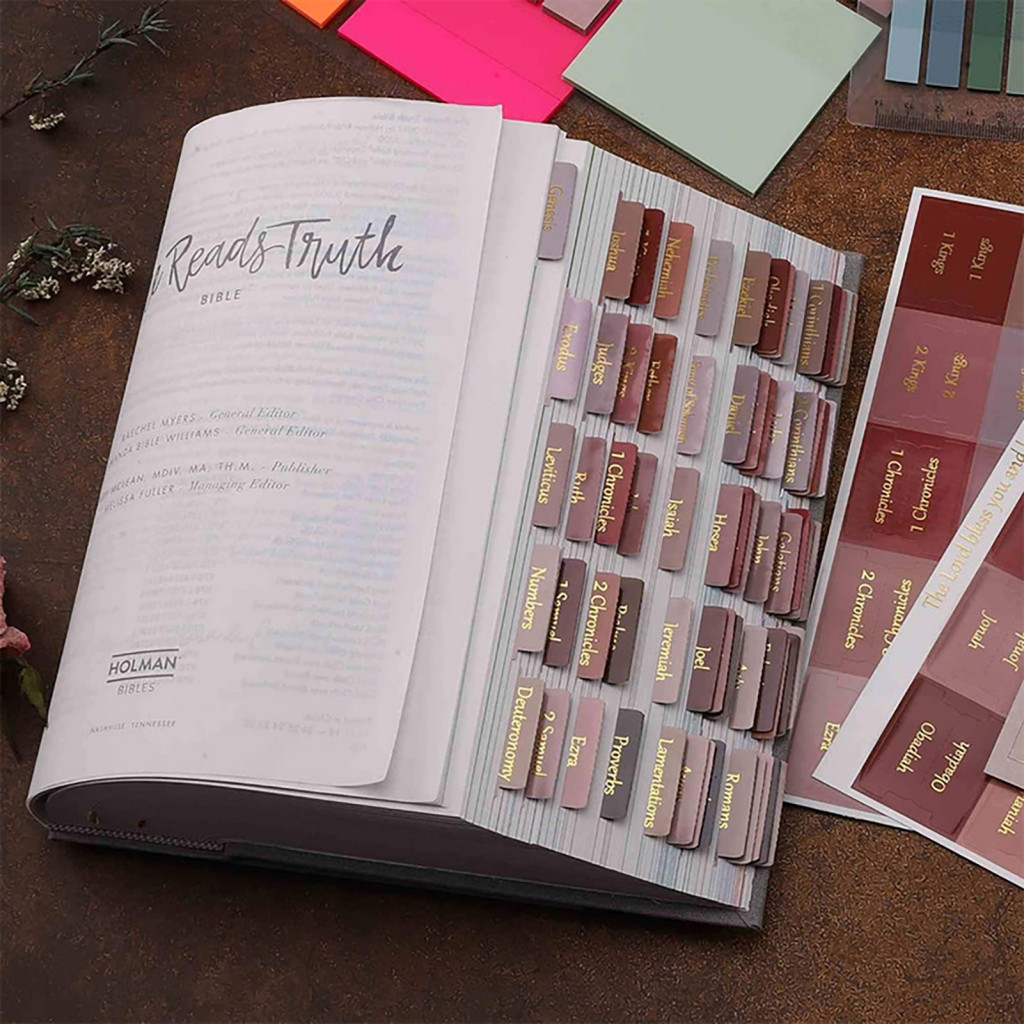 Reads Truth
BIBLE
RAECHEL MYERS - General Editor
BIBLE WILLIAMS - General Editor
MCLEAN, MDIV, MA, TH.M. - Publisher
MELISSA FULLER - Managing Editor
HOLMAN
BIBLES
NASHVILLE, TENNESSEE
Genesis
Exodus
Leviticus
Numbers
Deuteronomy
Joshua
Judges
Ruth
1 Samuel
2 Samuel
1 Chronicles
2 Chronicles
Ezra
Nehemiah
Esther
Proverbs
Isaiah
Jeremiah
Lamentations
Ezekiel
Daniel
Hosea
Joel
Obadiah
John
Romans
1 Corinthians
Corinthians
Galatians
1 Kings
1 Kings
2 Kings
2 Kings
1 Chronicles
1 Chronicles
2 Chronicles
Chronicles
Ezra
The Lord bless you and
Jonah
Jonah
Obadiah
Obadiah